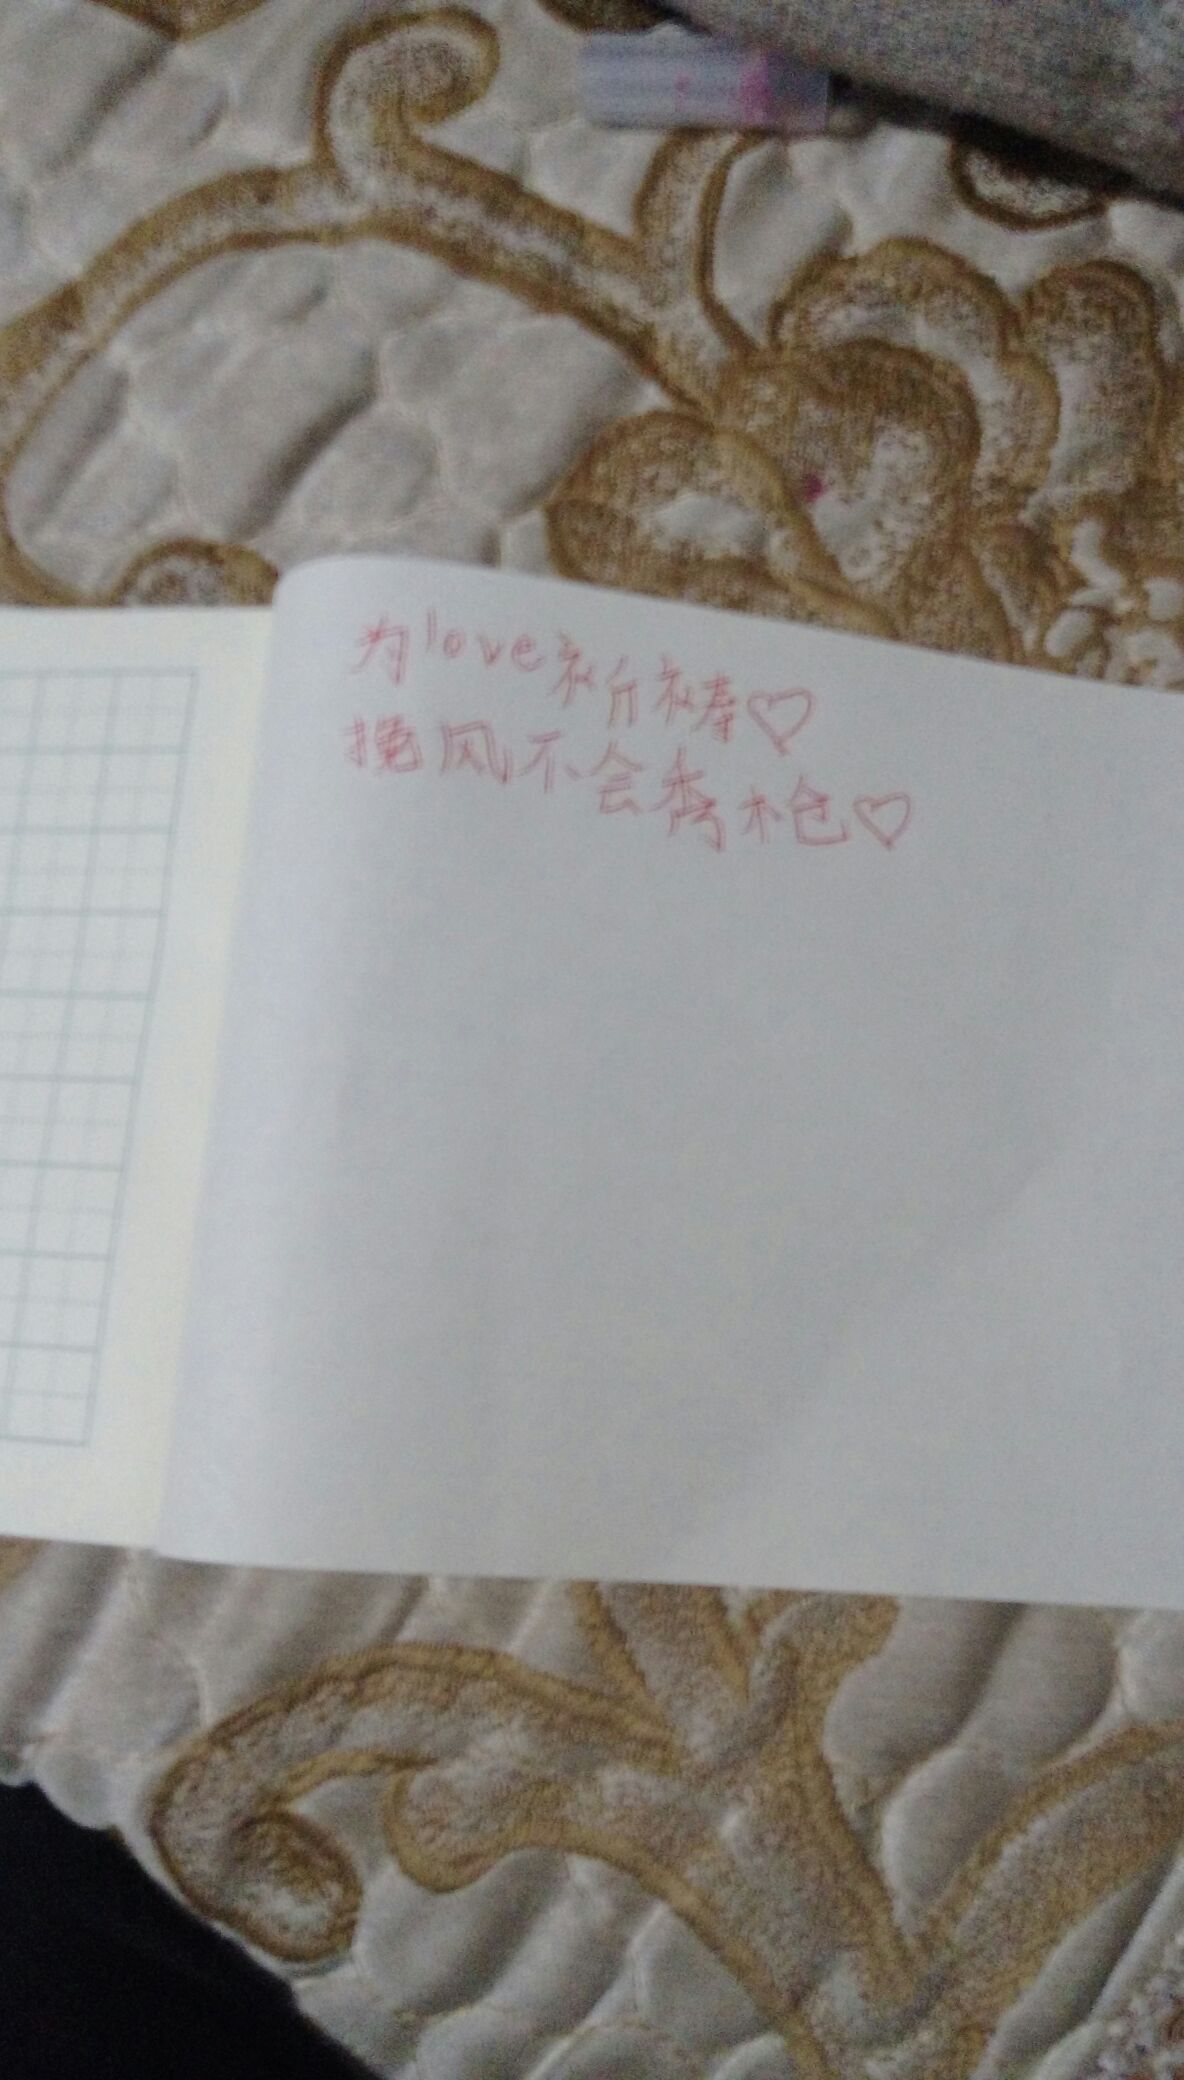 为love祈祷♡
挽风不会秀枪♡